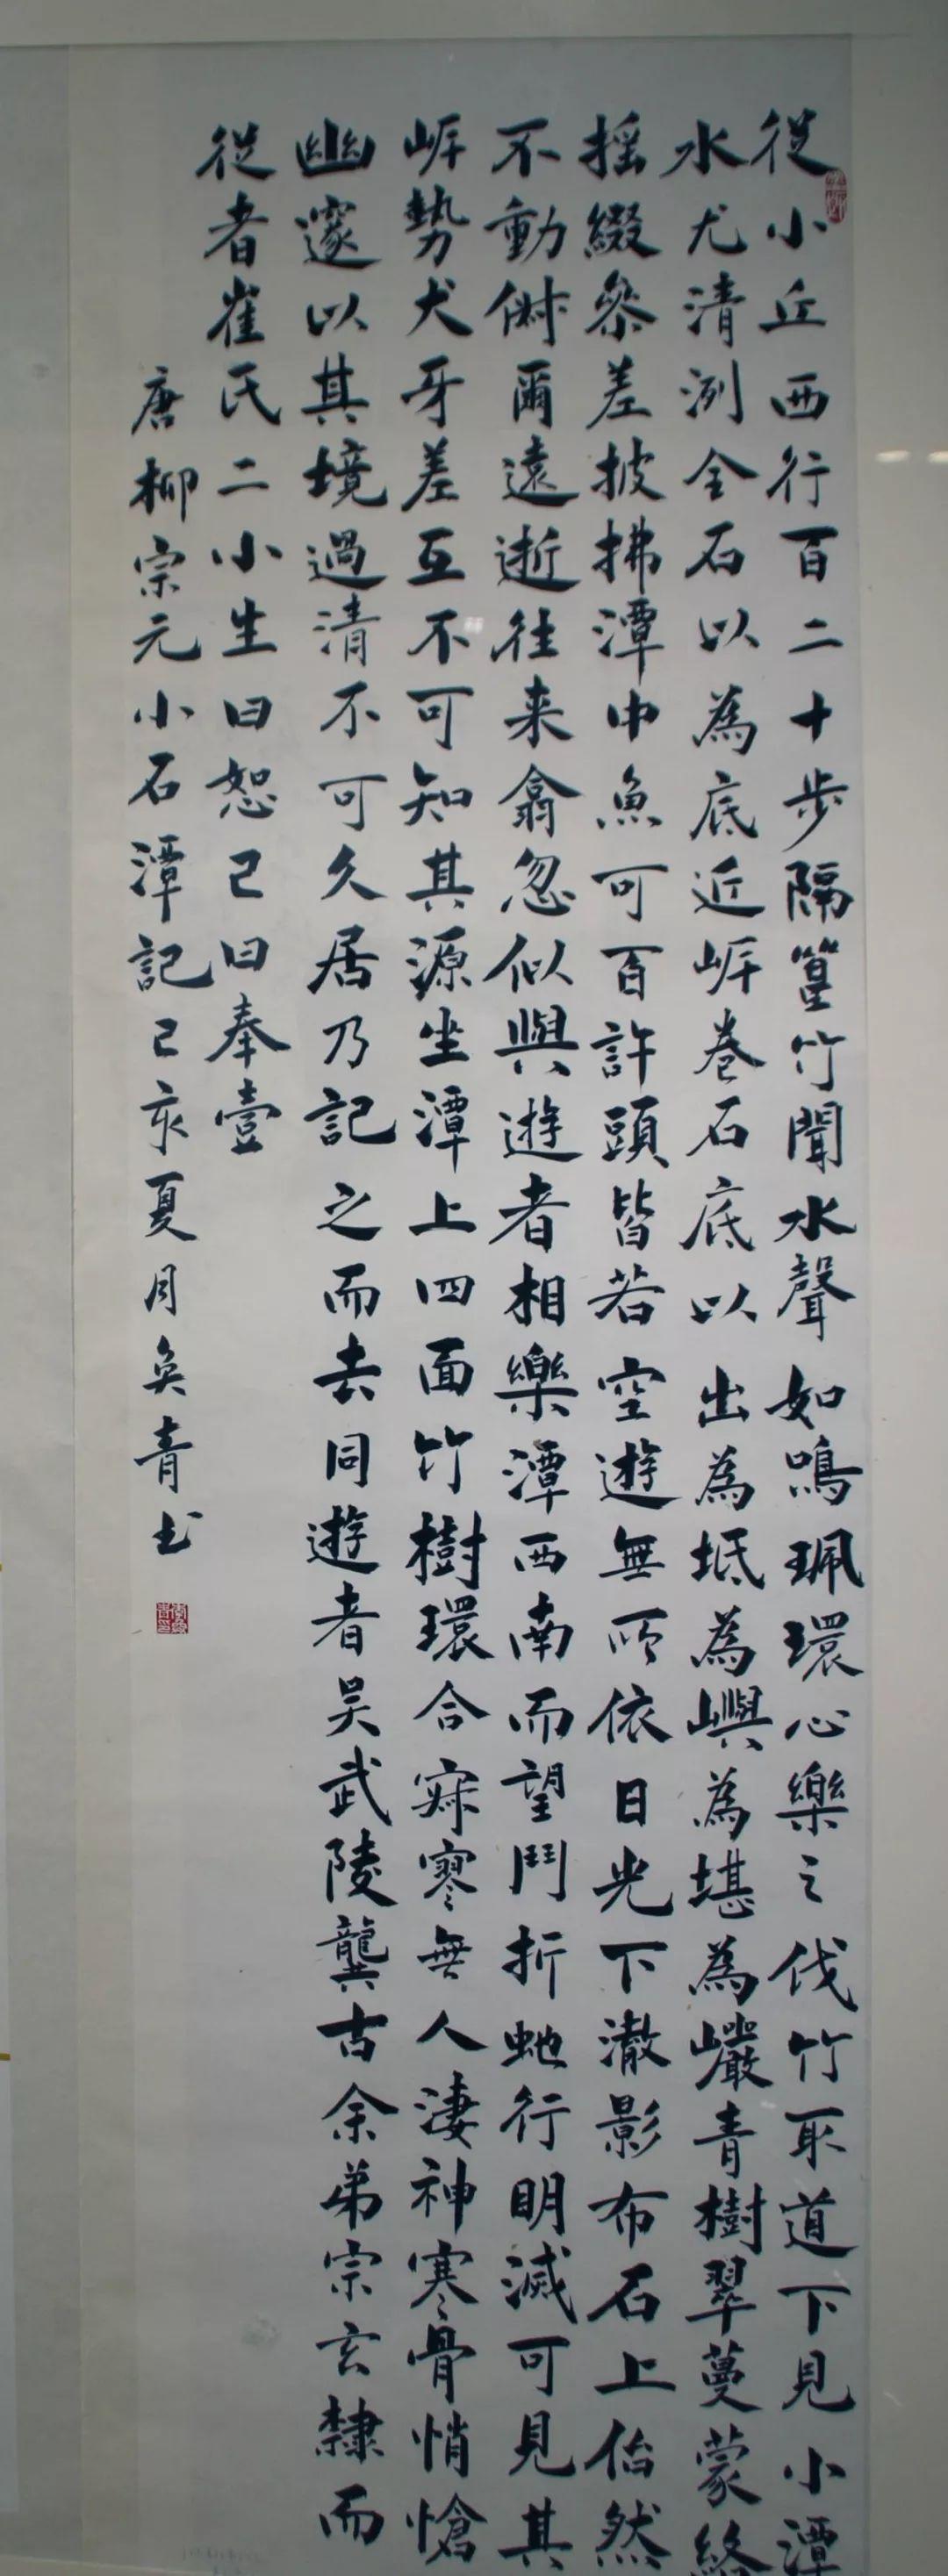 從小丘西行百二十步隔篁竹聞水聲如鳴珮環心樂之伐竹取道下見小潭
水尤清洌全石以為底近岸卷石底以出為坻為嶼為堪為巖青樹翠蔓蒙絡
摇綴參差披拂潭中魚可百許頭皆若空遊無所依日光下澈影布石上佁然
不動俶爾遠逝往来翕忽似與遊者相樂潭西南而望鬥折虵行明滅可見其
岸勢犬牙差互不可知其源坐潭上四面竹樹環合寂寥無人淒神寒骨悄愴
幽邃以其境過清不可久居乃記之而去同遊者吴武陵龔古余弟宗玄隸而
從者崔氏二小生曰恕己曰奉壹
唐柳宗元小石潭記己亥夏月奂青书